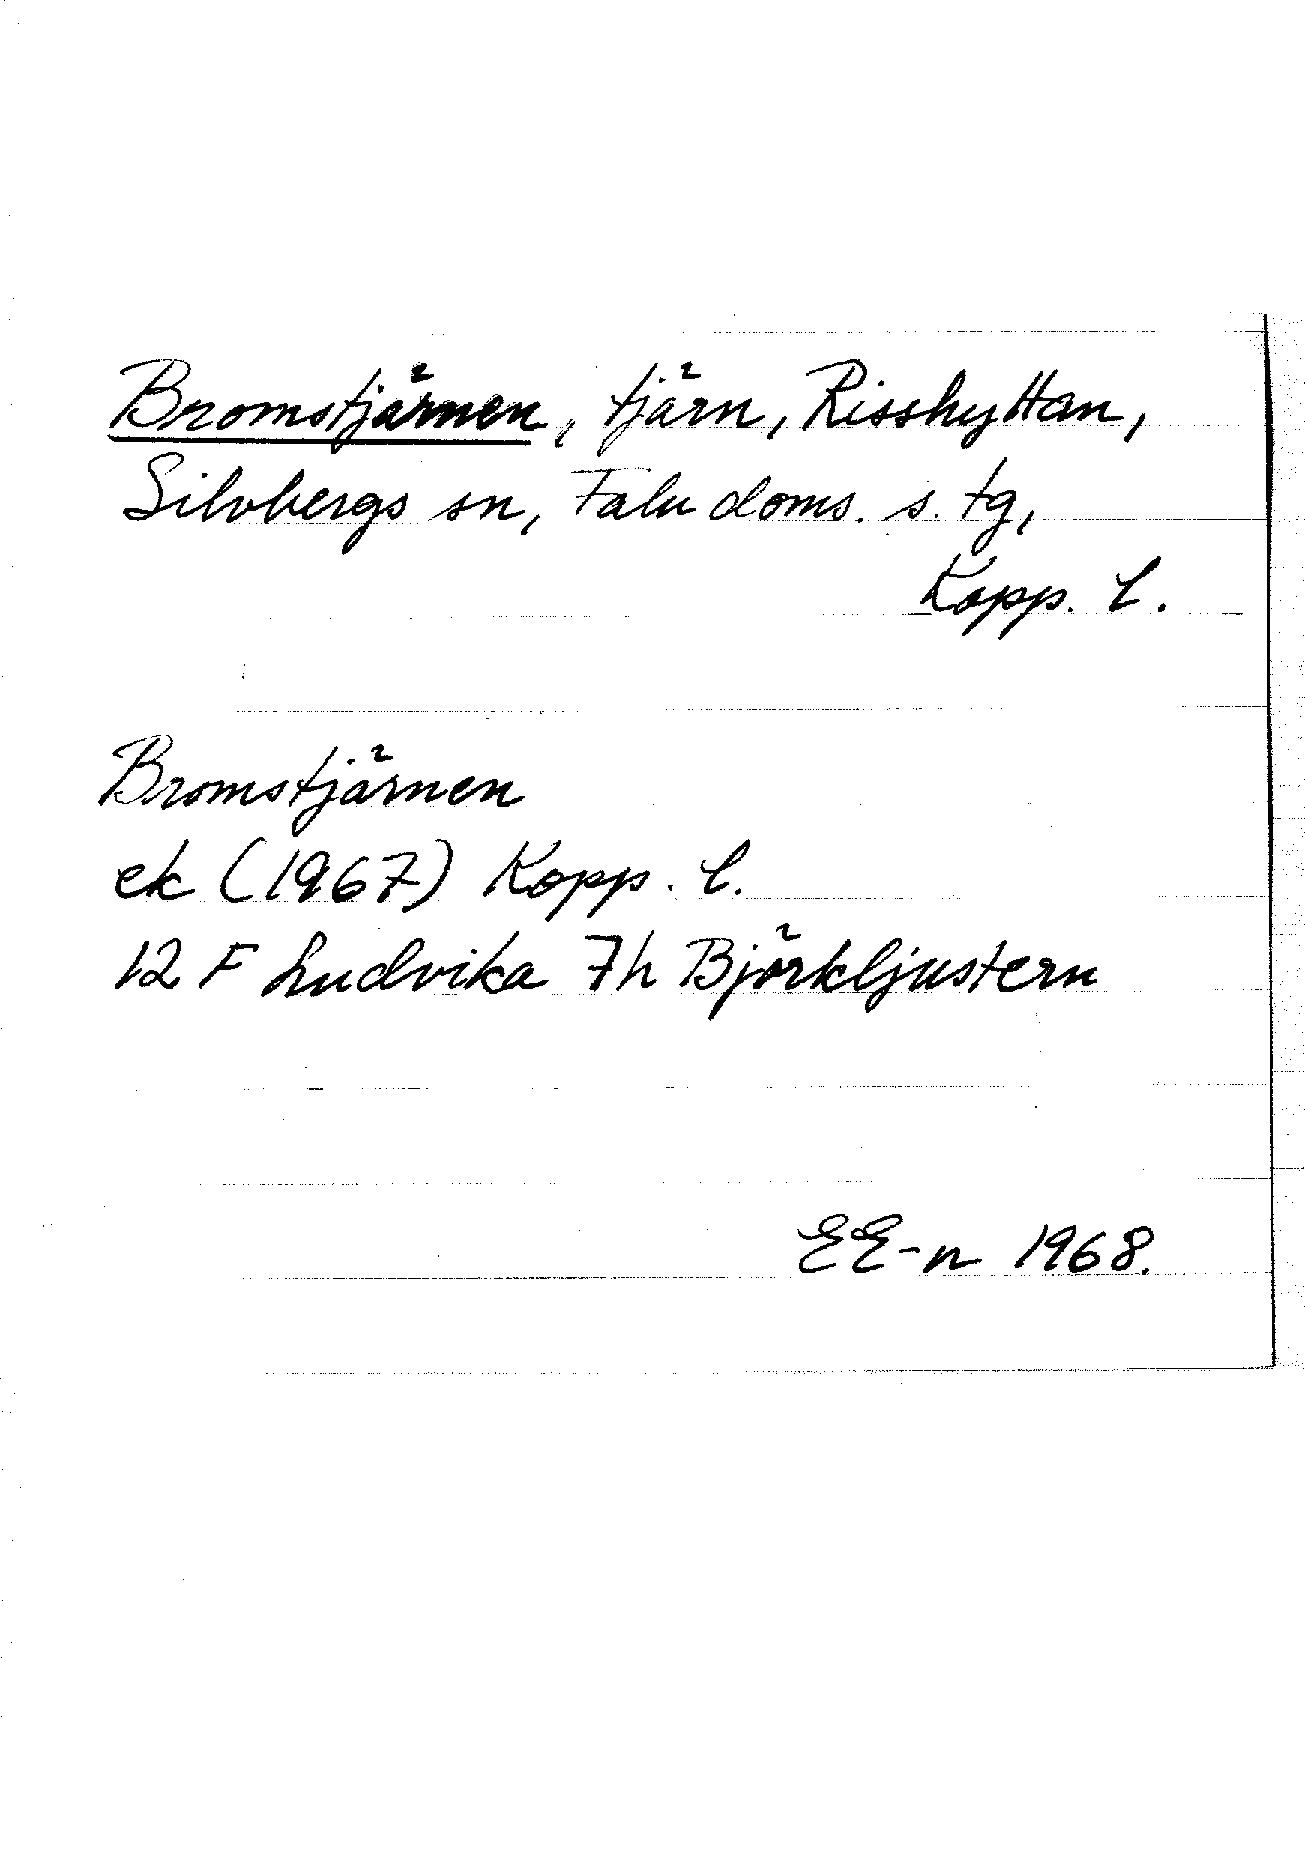 Bromstjärnen, tjärn, Risshyttan,
Silvbergs sn, Falu doms. s. tg,
Kopp. l.
Bromstjärnen
ek (1967) Kopp. l.
12 F Ludvika 7h Björkljustern
EE-n 1968.